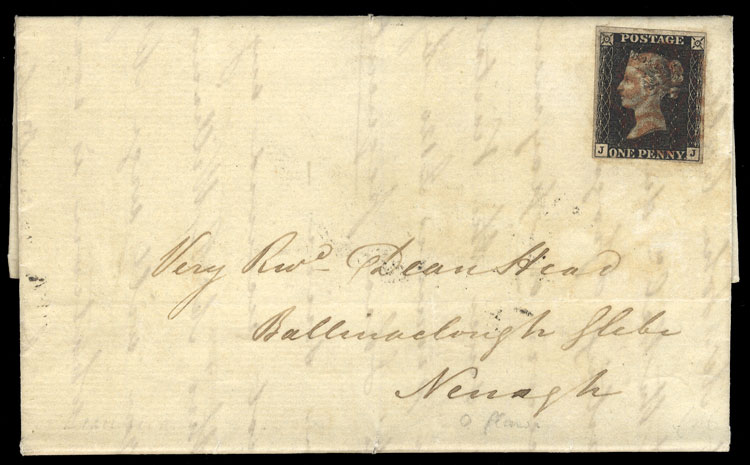 POSTAGE
J J
ONE PENNY
Very Revd Dean Head
Ballinaclough Glebe
Nenagh